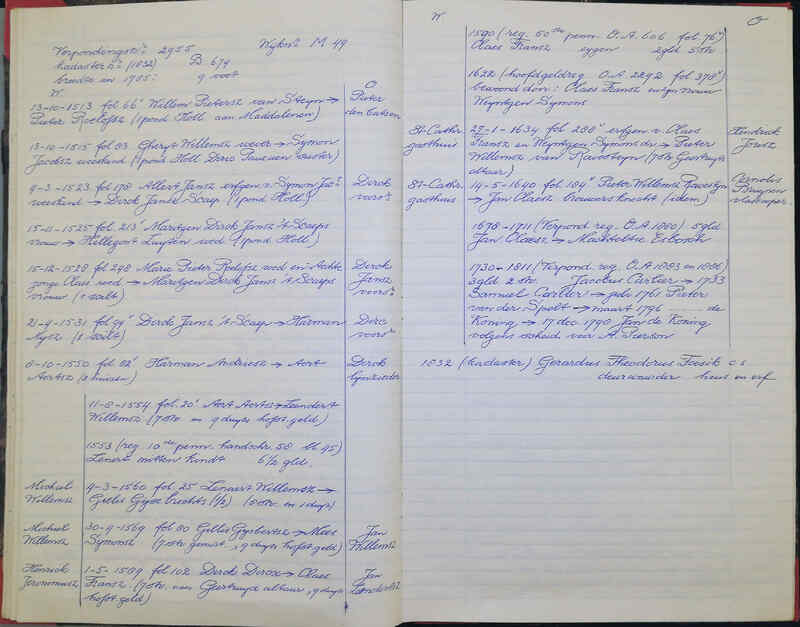 Verpondingsnr. 2955 Wijknr M 49
Kadaster nr. (1832) B 679
breedte in 1785: 9 voet
W. O
13-10-1513 fol 66v Willem Pietersz van Steyn →
Pieter Roelofsz (1 pond Holl aan Magdalenen)
Pieter
13-10-1515 fol 83 Gheryt Willemsz wever → Symon
Jacobsz weeskind (1 pond Holl Derc
9-3-1523 fol 178 Allert Jansz erfgen v Symon Jacz
weeskind → Derck Jansz Scaep (1 pond Holl)
Derck
voorz
15-11-1525 fol. 213v Maritgen Derck Jansz 't Scaeps
vrou → Hillegont Luyten wed (1 pond Holl)
15-12-1528 fol 248 Marie Pieter Roelofsz wed en Aechte
jonge Claes wed → Maritgen Derck Jansz 't Scaeps
vrouw
Derck
Jansz
voorz
21-9-1531 fol 99v Derck Jansz 't Scaep → Harman
Derc
voorz
8-10-1550 fol 82v Harman Andriesz → Aert
Aertsz
Derck
11-8-1554 fol. 20v Aert Aertsz → Leendert
Willemsz (7 str en 9 duyts hofst. geld)
1553 (reg 10de penn. handschr. 58 bl 45)
Lenert mitten Kindt 6½ gld.
Michiel
Willemsz
9-3-1560 fol 25 Lenaert Willemsz →
Gellis Gysebrechts (½)
Michiel
Willemsz
30-4-1569 fol 80 Gellis Gysbertsz → Mees
Symonsz
Jan
Willemsz
Henrick
Jeronimusz
1-5-1589 fol 102 Derck Dircxz → Claes
Fransz (7 str. van Geertruyt altaar, 9 duyts
hofst. geld)
Jan
Leendertsz
W O
1590 (reg. 50ste penn. O.A. 606 fol 76v)
Claes Fransz eygen 2 gld 5 str.
1622 (hoofdgeldreg. O.A. 2292 fol 378v)
bewoond door: Claes Fransz en sijn vrouw
Weyntgen Symons
St. Cathr.
gasthuis
27-1-1634 fol 288v erfgen v. Claes
Fransz en Weyntgen Symonsdr → Pieter
Willemsz van Ravesteyn (7 str Geertruyts
altaar)
Hendrick
Joosz
St-Cathr.
gasthuis
14-5-1640 fol 104v Pieter Willemsz Ravesteyn
→ Jan Claesz brouwersknecht (idem)
Cornelis
1678-1711 (Verpond. reg. O.A. 1080) 5 gld
Jan Claesz →
1730-1811 (Verpond. reg. O.A. 1083 en 1086)
3 gld 2 str. Jacobus Carlier → 1733
Samuel Carlier → pdr 1761 Pieter
van der Spelt → maart 1796 ..... de
Koning → 17 dec. 1790 Jan de Koning
1832 (Kadaster) Gerardus Theodorus c s
deurwaarder huis en erf